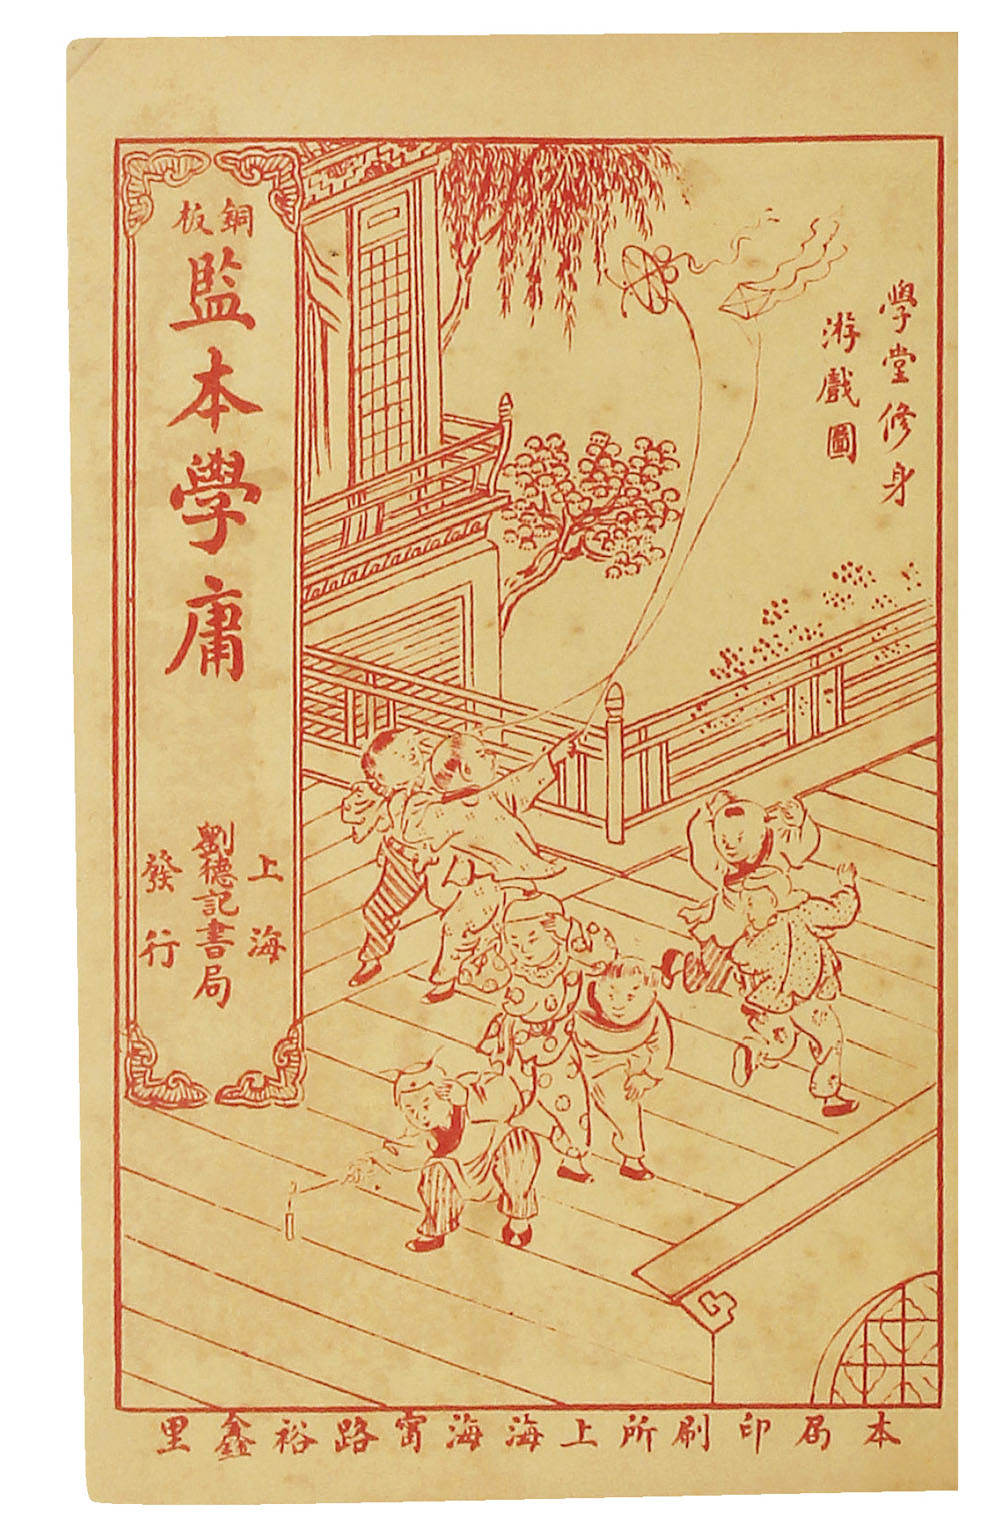 學堂修身
游戲圖
銅板
監本學庸
上海
劉德記書局
發行
本局印刷所上海海甯路裕鑫里